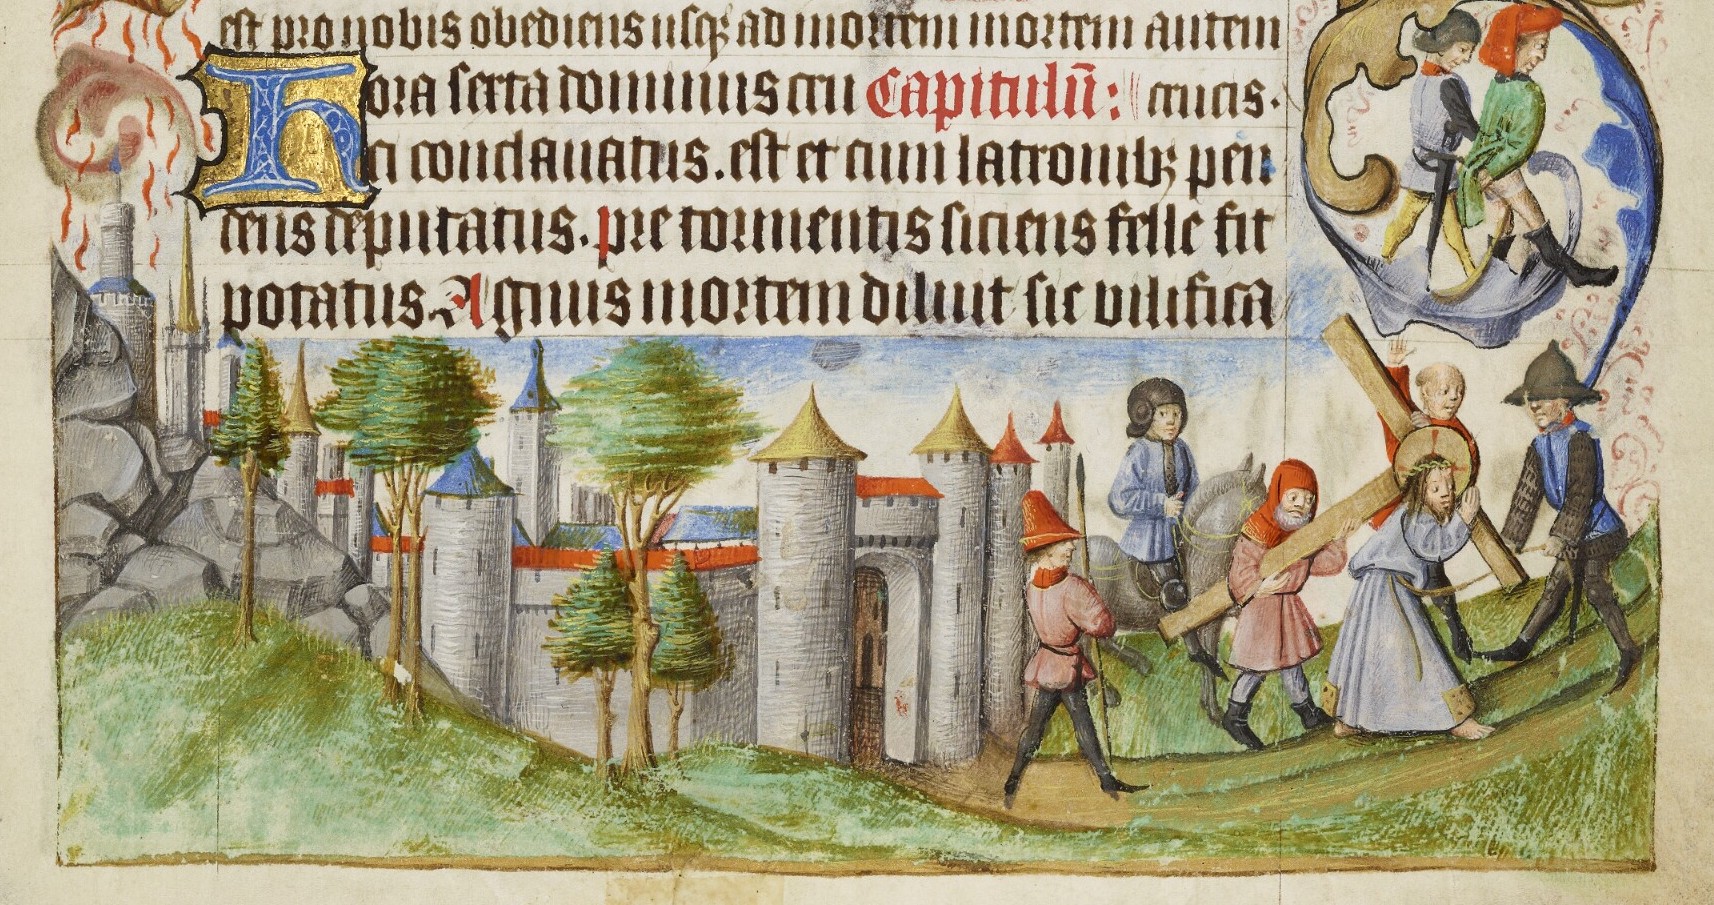 est pro nobis obediens usqꝫ ad mortem mortem autem
hora sexta dominus cru Capitulū: crucis.
ci conclavatus. est et cum latronibꝫ pen
dens deputatus. pre tormentis siciens felle fit
potatus. Agnus mortem diluit sic vilifica